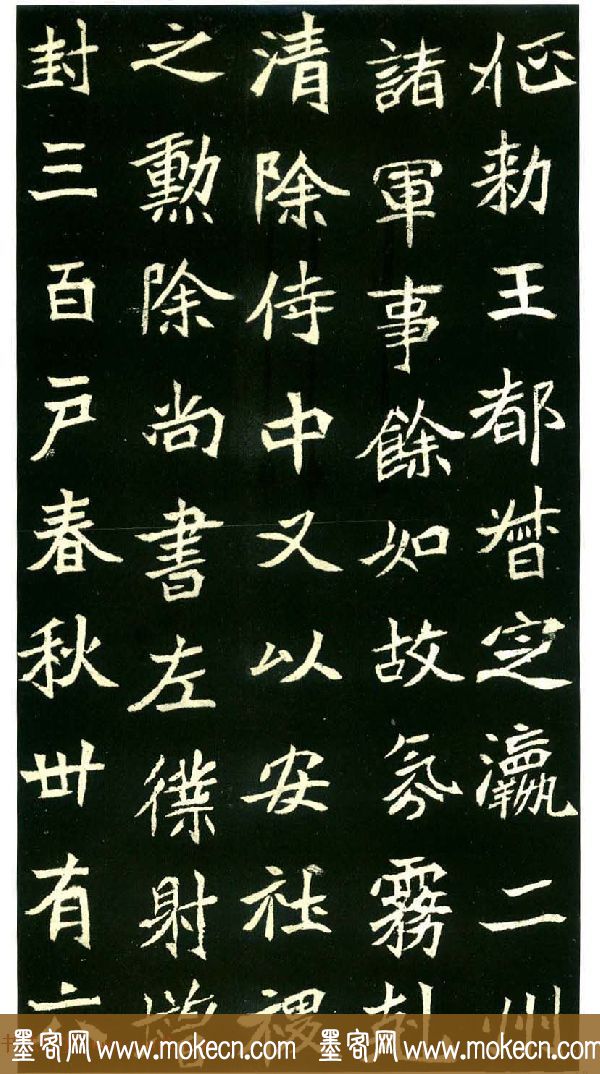 征勑王都督定瀛二州
諸軍事餘如故氛霧尅
清除侍中又以安社稷
之勳除尚書左僕射增
封三百户春秋卅有六
墨客网 www.mokecn.com 墨客网 www.mokecn.com